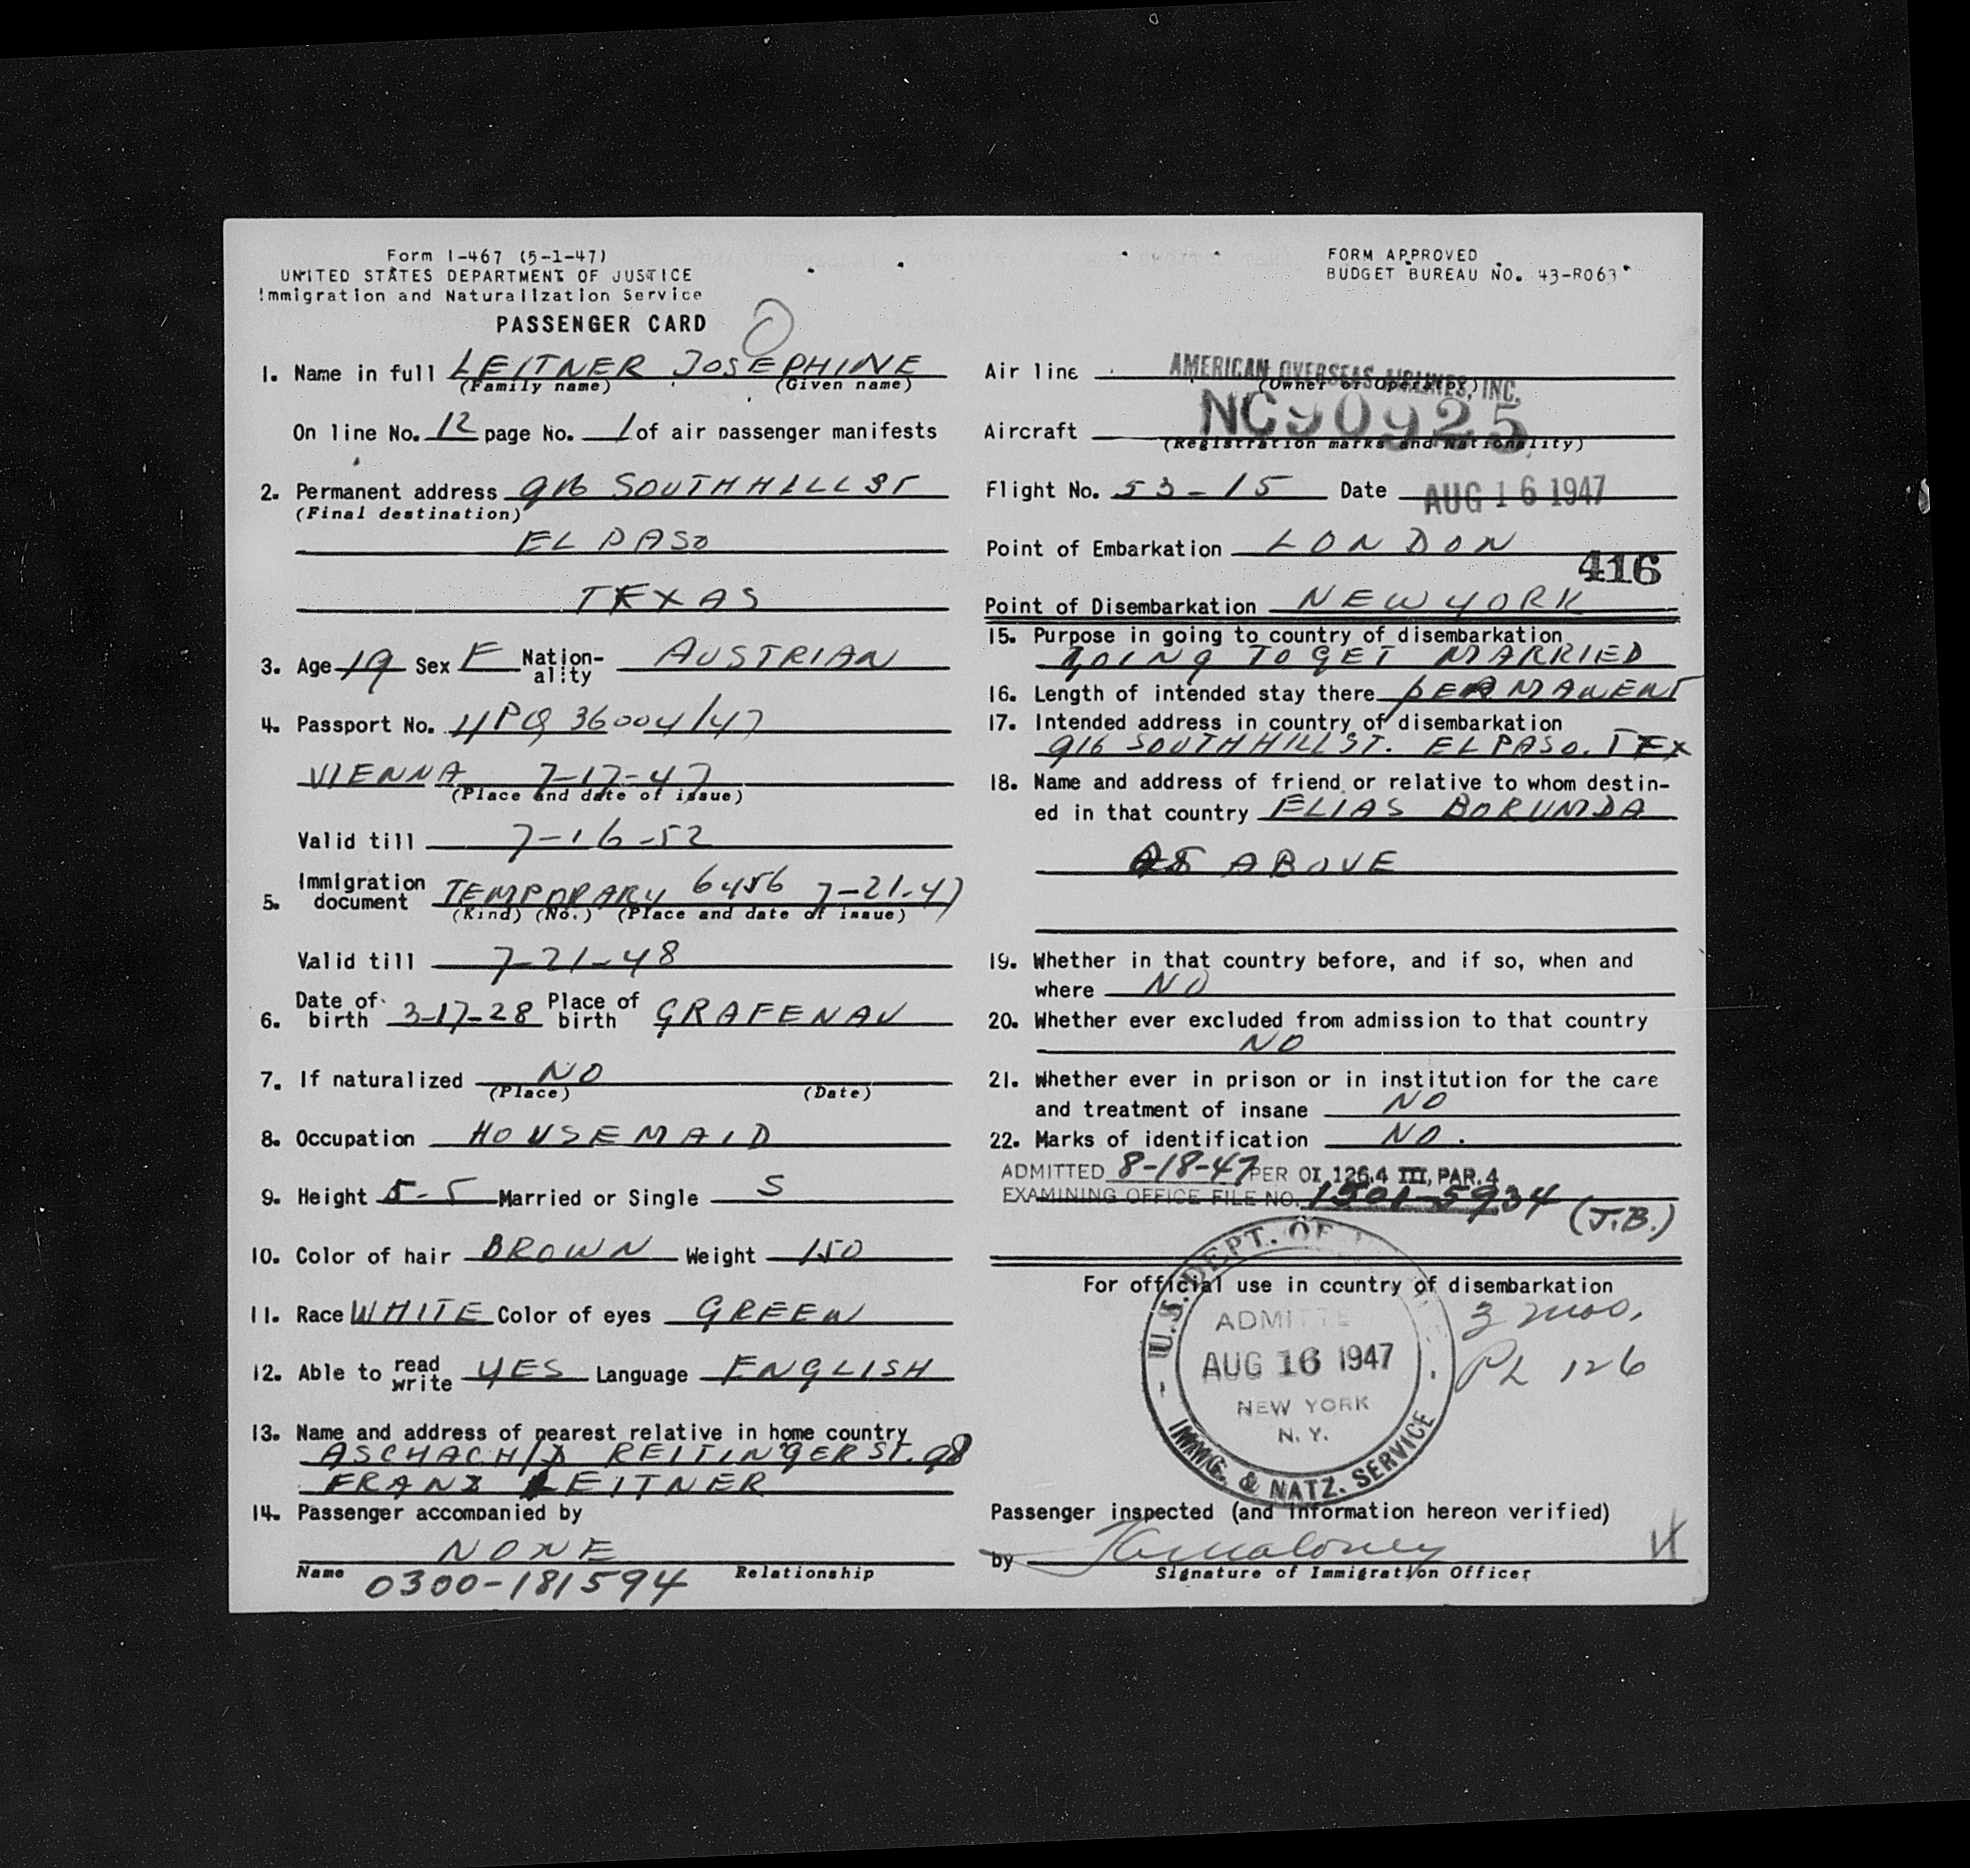 Form I-467 (5-1-47)
UNITED STATES DEPARTMENT OF JUSTICE
Immigration and Naturalization Service
PASSENGER CARD
FORM APPROVED
BUDGET BUREAU NO. 43-R063
1. Name in full LEITNER JOSEPHINE
(Family name) (Given name)
On line No. 12 page No. 1 of air passenger manifests
2. Permanent address 916 SOUTH HILL ST
(Final destination)
EL PASO
TEXAS
3. Age 19 Sex F Nation-ality AUSTRIAN
4. Passport No. 36004/47
VIENNA 7-17-47
(Place and date of issue)
Valid till 7-16-52
5. Immigration document TEMPORARY 6456 7-21-47
(Kind) (No.) (Place and date of issue)
Valid till 7-21-48
6. Date of birth 3-17-28 Place of birth GRAFENAU
7. If naturalized NO
(Place) (Date)
8. Occupation HOUSEMAID
9. Height 5-5 Married or Single S
10. Color of hair BROWN Weight 150
11. Race WHITE Color of eyes GREEN
12. Able to read write YES Language ENGLISH
13. Name and address of nearest relative in home country
ASCHACH/D REITINGERST. 98
FRANZ LEITNER
14. Passenger accompanied by
NONE
Name Relationship
0300-181594
Air line AMERICAN OVERSEAS AIRLINES, INC.
(Owner or Operator)
Aircraft NC90925
(Registration marks and Nationality)
Flight No. 53-15 Date AUG 16 1947
Point of Embarkation LONDON
416
Point of Disembarkation NEW YORK
15. Purpose in going to country of disembarkation
GOING TO GET MARRIED
16. Length of intended stay there PERMANENT
17. Intended address in country of disembarkation
916 SOUTH HILL ST. EL PASO. TEX
18. Name and address of friend or relative to whom destin-
ed in that country ELIAS BORUNDA
AS ABOVE
19. Whether in that country before, and if so, when and
where NO
20. Whether ever excluded from admission to that country
NO
21. Whether ever in prison or in institution for the care
and treatment of insane NO
22. Marks of identification NO.
ADMITTED 8-18-47 PER OI 126.4 III, PAR.4
EXAMINING OFFICE FILE NO. 1501-5934
(J.B.)
For official use in country of disembarkation
U.S. DEPT. OF
ADMITTE
AUG 16 1947
NEW YORK
N.Y.
IMMG. & NATZ. SERVICE
3 mos.
PL 126
Passenger inspected (and information hereon verified)
by
Signature of Immigration Officer